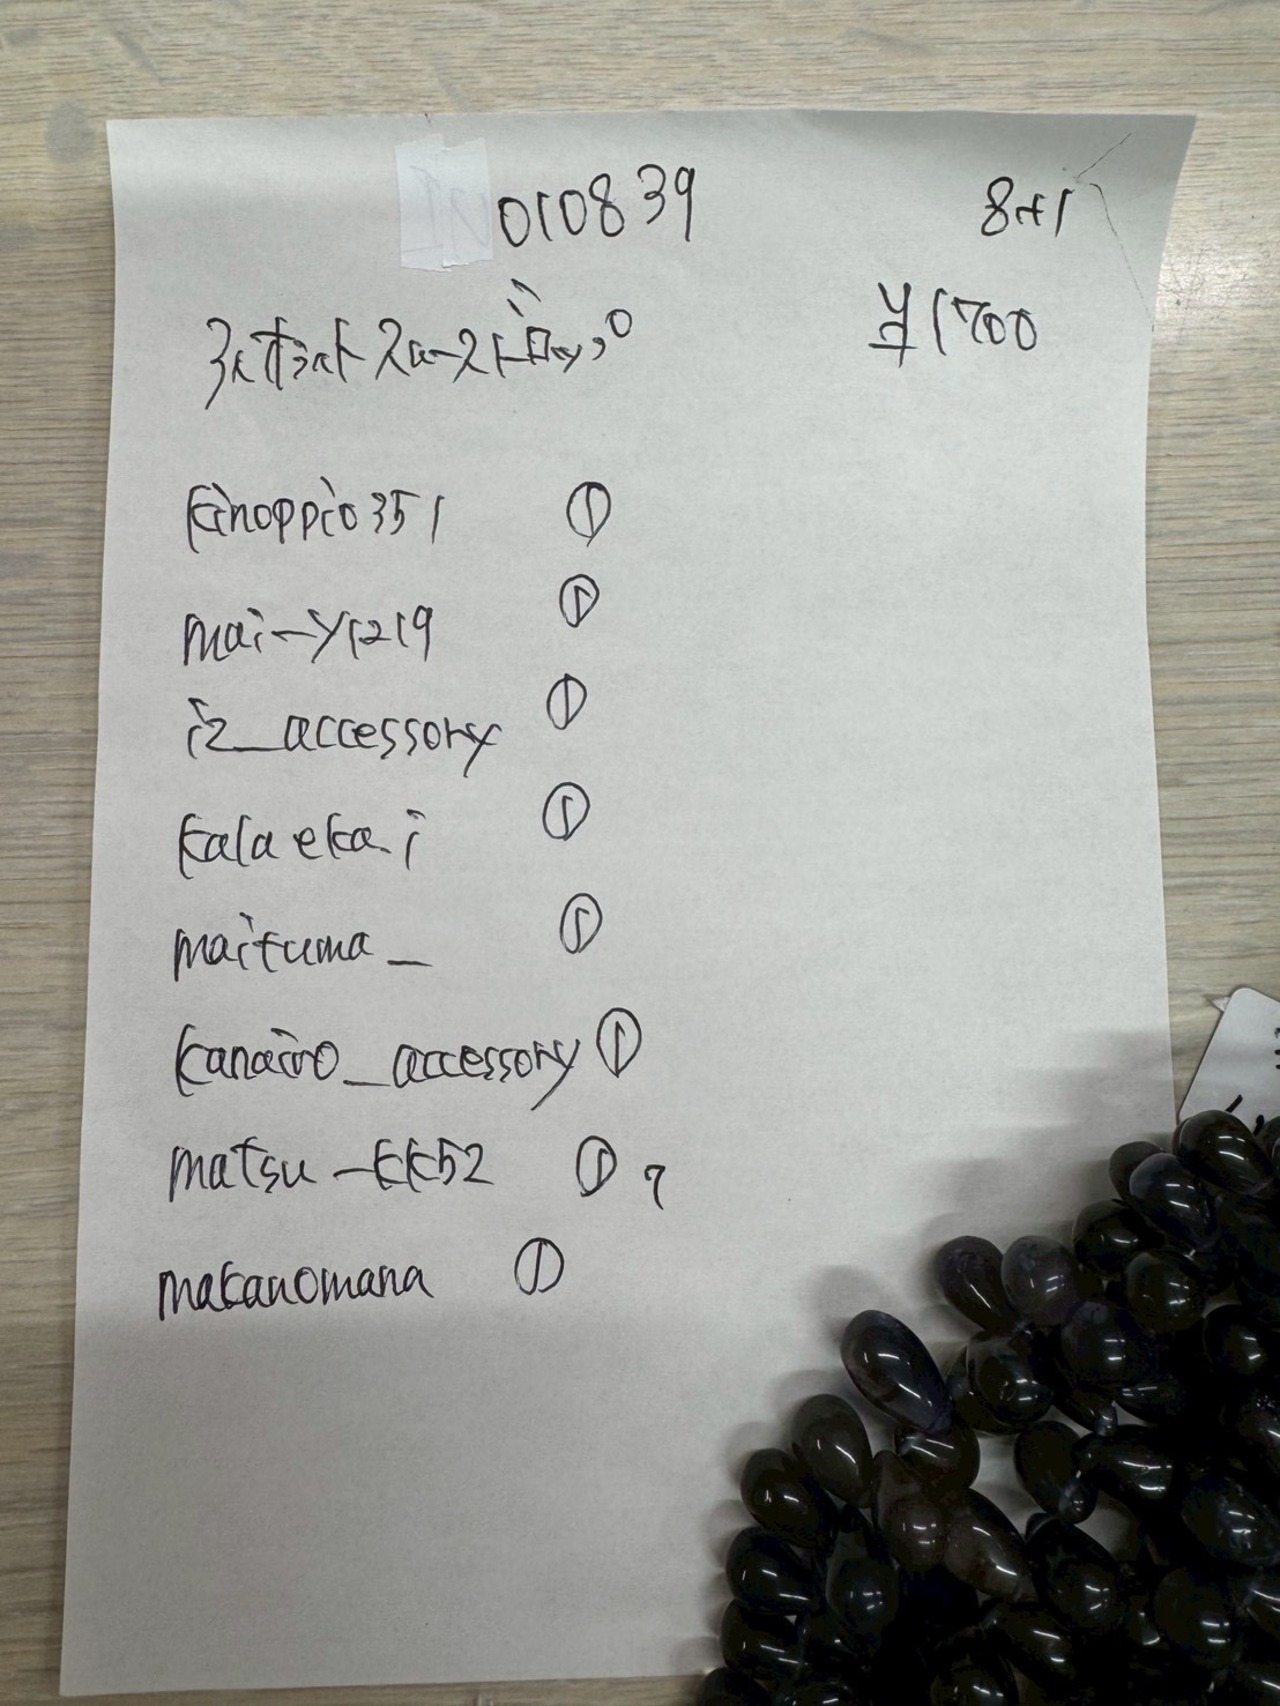 010839
8+1
¥1700
kinoppio351 ①
mai-y1219 ①
iz_accessory ①
kalaeka.i ①
maituma_ ①
kanairo_accessory ①
matsu-kk52 ① ?
makanomana ①